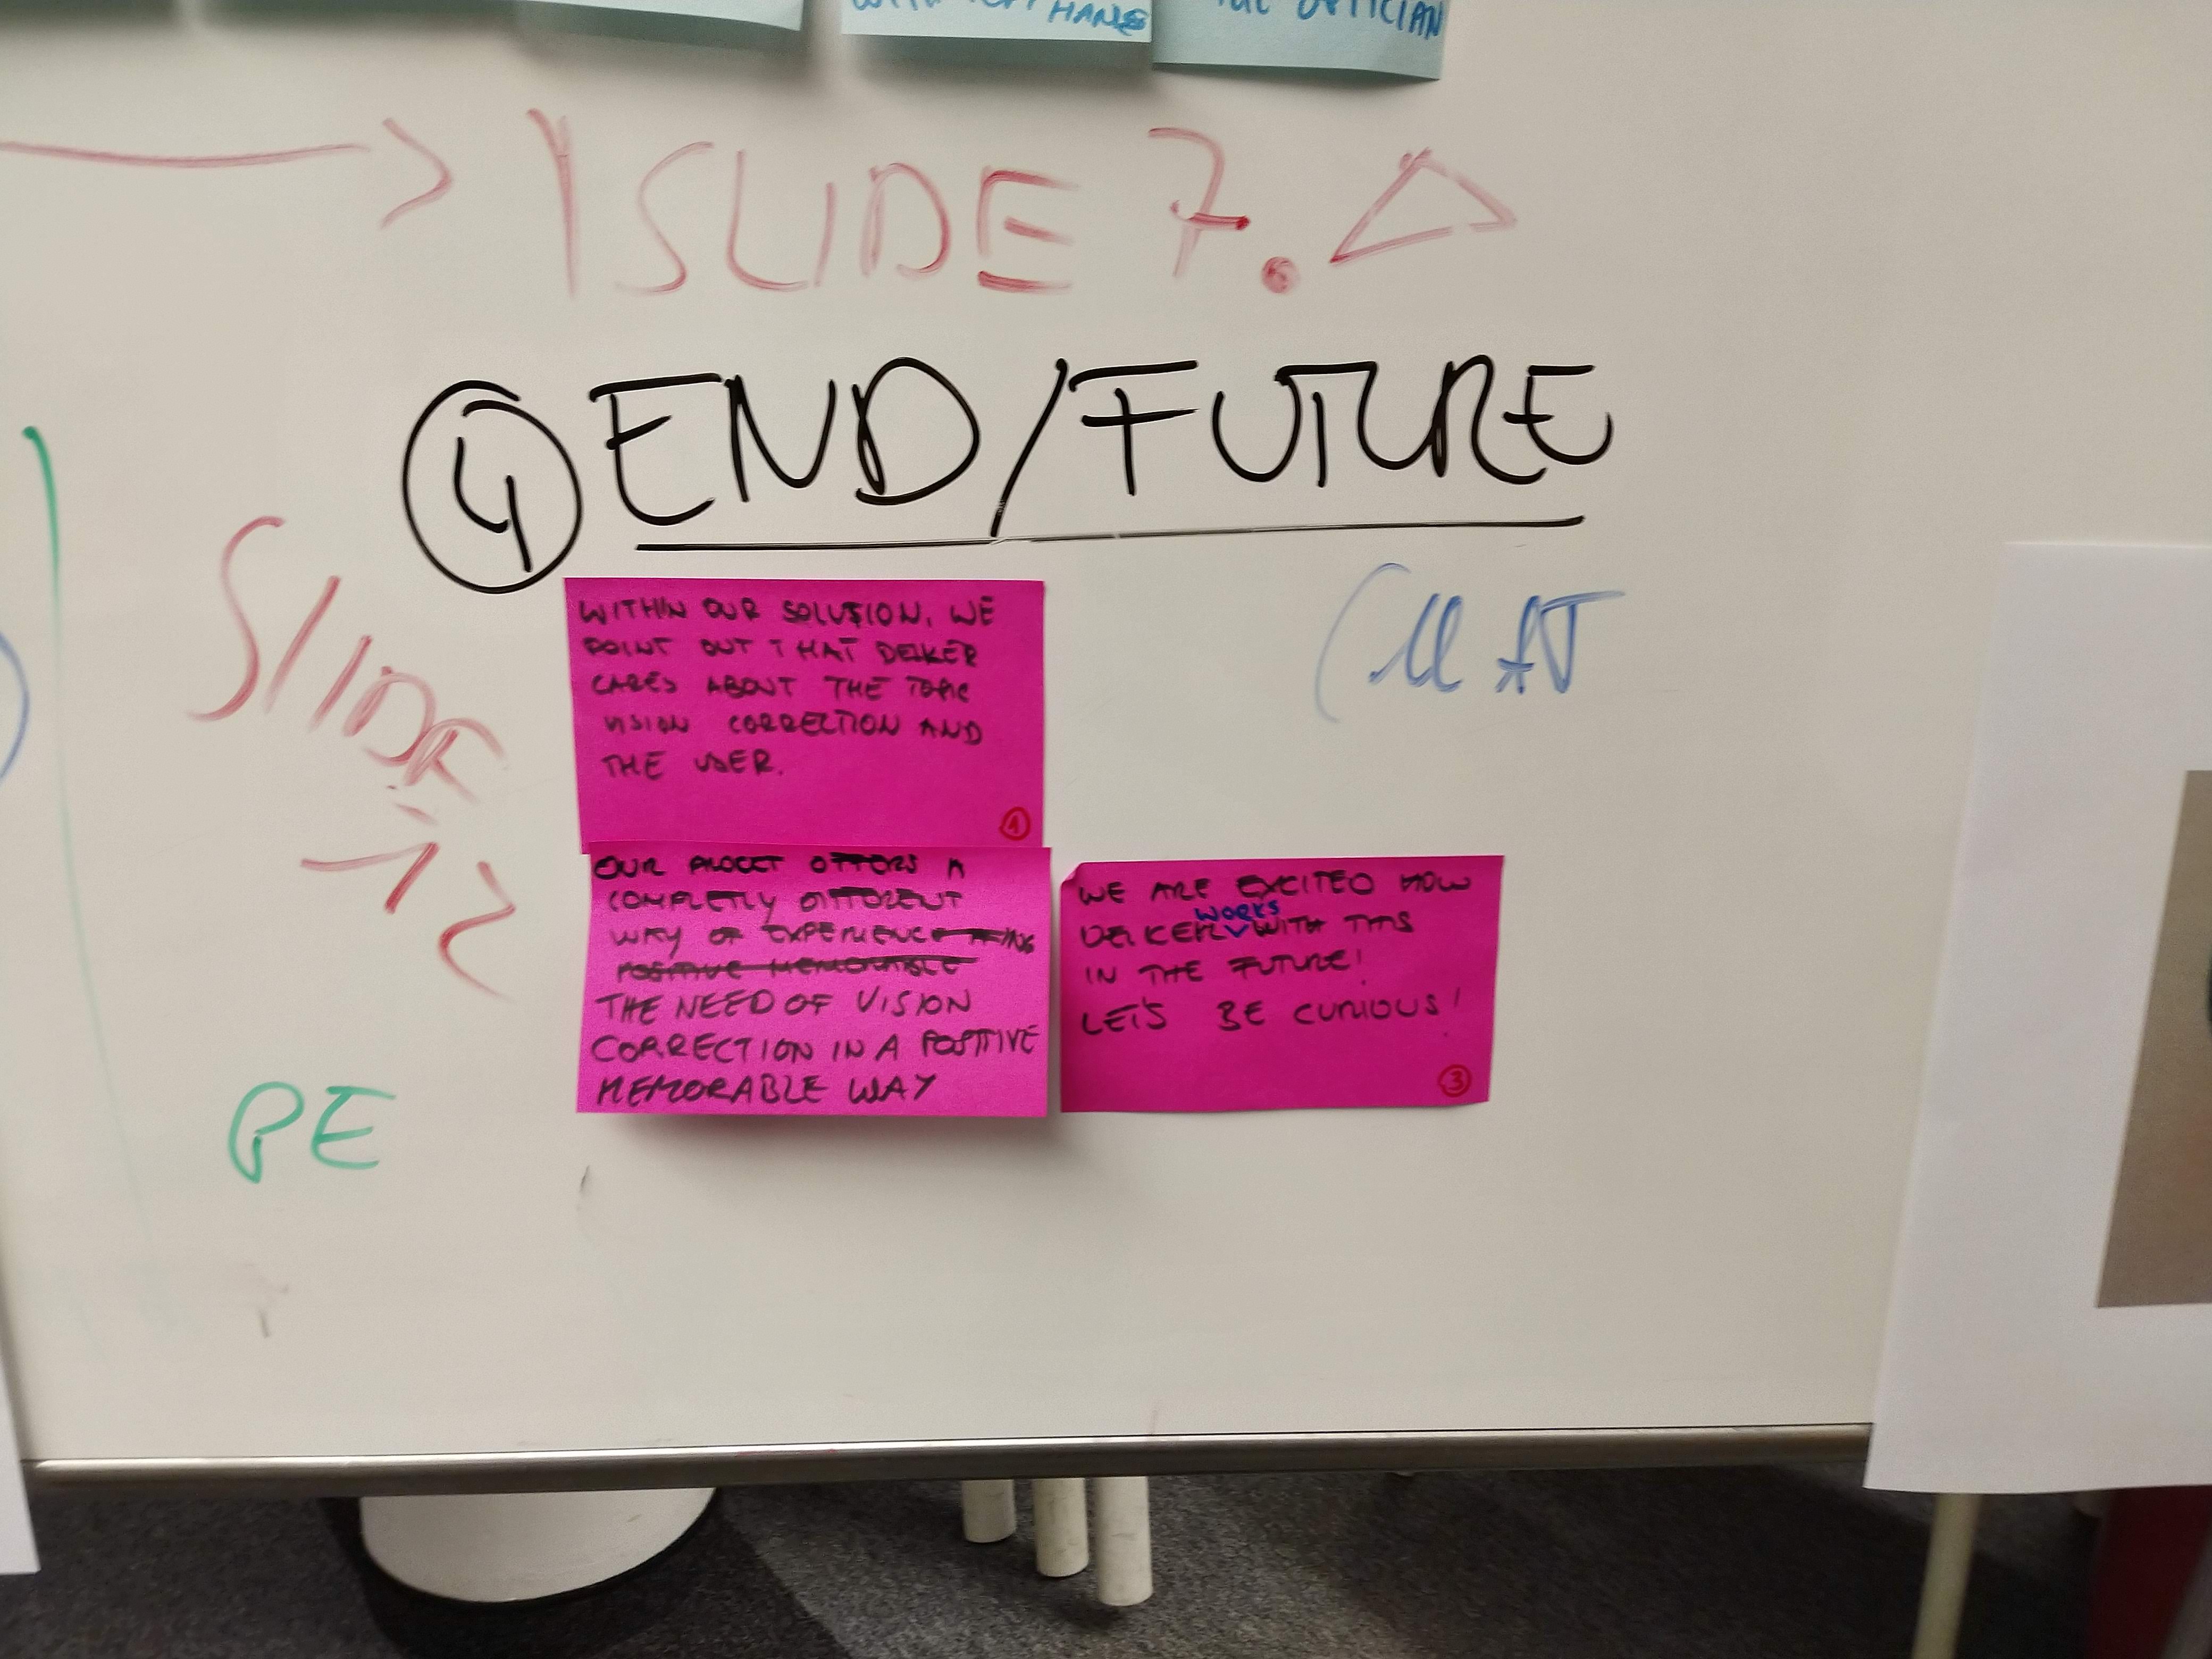 HANDS
OPTICIAN
1 SLIDE 7.
4 END/FUTURE
SLIDE
12
WITHIN OUR SOLUSION, WE
POINT OUT THAT DELKER
CARES ABOUT THE TOPIC
VISION CORRECTION AND
THE USER.
1
OUR OFFERS A
COMPLETLY DIFFERENT
WAY OF EXPERIENCE
POSITIVE MEMORABLE
THE NEED OF VISION
CORRECTION IN A POSITIVE
MEMORABLE WAY
WE ARE EXCITED HOW
WORKS
DELKER WITH THIS
IN THE FUTURE!
LET'S BE CURIOUS!
3
PE